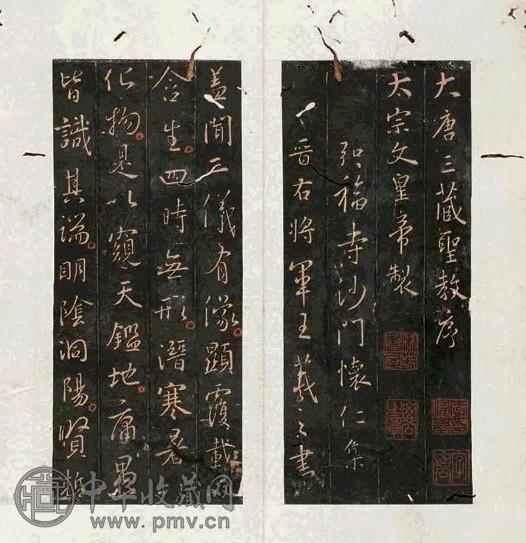 大唐三藏聖教序
太宗文皇帝製
弘福寺沙門懷仁集
晉右將軍王羲之書
蓋聞二儀有像顯覆載
含生四時無形潛寒暑以
化物是以窺天鑑地庸愚
皆識其端明陰洞陽賢哲
中华收藏网
www.pmv.cn